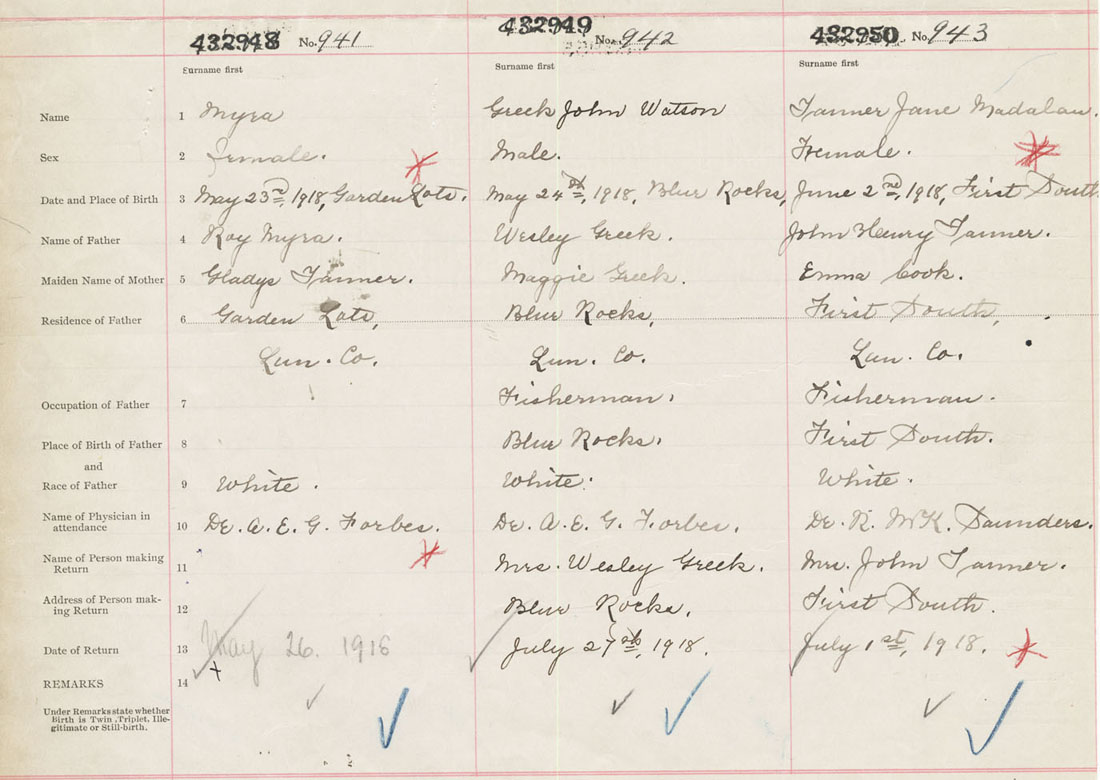 432948 No. 941 432949 No. 942 432950 No. 943
Surname first Surname first Surname first
Name 1 Myra Greek John Watson Tanner Jane Madalau.
Sex 2 Female. Male. Female.
Date and Place of Birth 3 May 23rd, 1918, Garden Lots. May 24th, 1918, Blue Rocks, June 2nd, 1918, First South
Name of Father 4 Roy Myra. Wesley Greek. John Henry Tanner.
Maiden Name of Mother 5 Gladys Tanner. Maggie Greek. Emma Cook.
Residence of Father 6 Garden Lots, Blue Rocks, First South,
Lun. Co. Lun. Co. Lun. Co.
Occupation of Father 7 Fisherman. Fisherman.
Place of Birth of Father 8 Blue Rocks. First South.
and
Race of Father 9 White. White. White.
Name of Physician in
attendance 10 Dr. A. E. G. Forbes. Dr. A. E. G. Forbes. Dr. R. McK. Saunders.
Name of Person making
Return 11 Mrs. Wesley Greek. Mrs. John Tanner.
Address of Person mak-
ing Return 12 Blue Rocks. First South.
Date of Return 13 May 26. 1918 July 27th, 1918. July 1st, 1918.
REMARKS 14
Under Remarks state whether
Birth is Twin, Triplet, Ille-
gitimate or Still-birth.